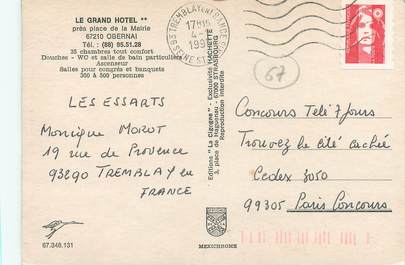 LE GRAND HOTEL **
près place de la Mairie
67210 OBERNAI
Tél. : (88) 95.51.28
35 chambres tout confort
Douches - WC et salle de bain particulières
Ascenseur
Salles pour congrès et banquets
300 à 500 personnes
LES ESSARTS
Monique MOROT
19 rue de Provence
93290 TREMBLAY en
FRANCE
67.348.131
Editions "La Cigogne" - Exclusivité HACHETTE
3, place de Haguenau - 67000 STRASBOURG
Reproduction interdite
MEXICHROME
93 TREMBLAY EN FRANCE
17H15
4-
199
SEINE ST
67
Concours Télé 7 Jours
Trouvez la cité cachée
Cedex 3050
99305 Paris Concours